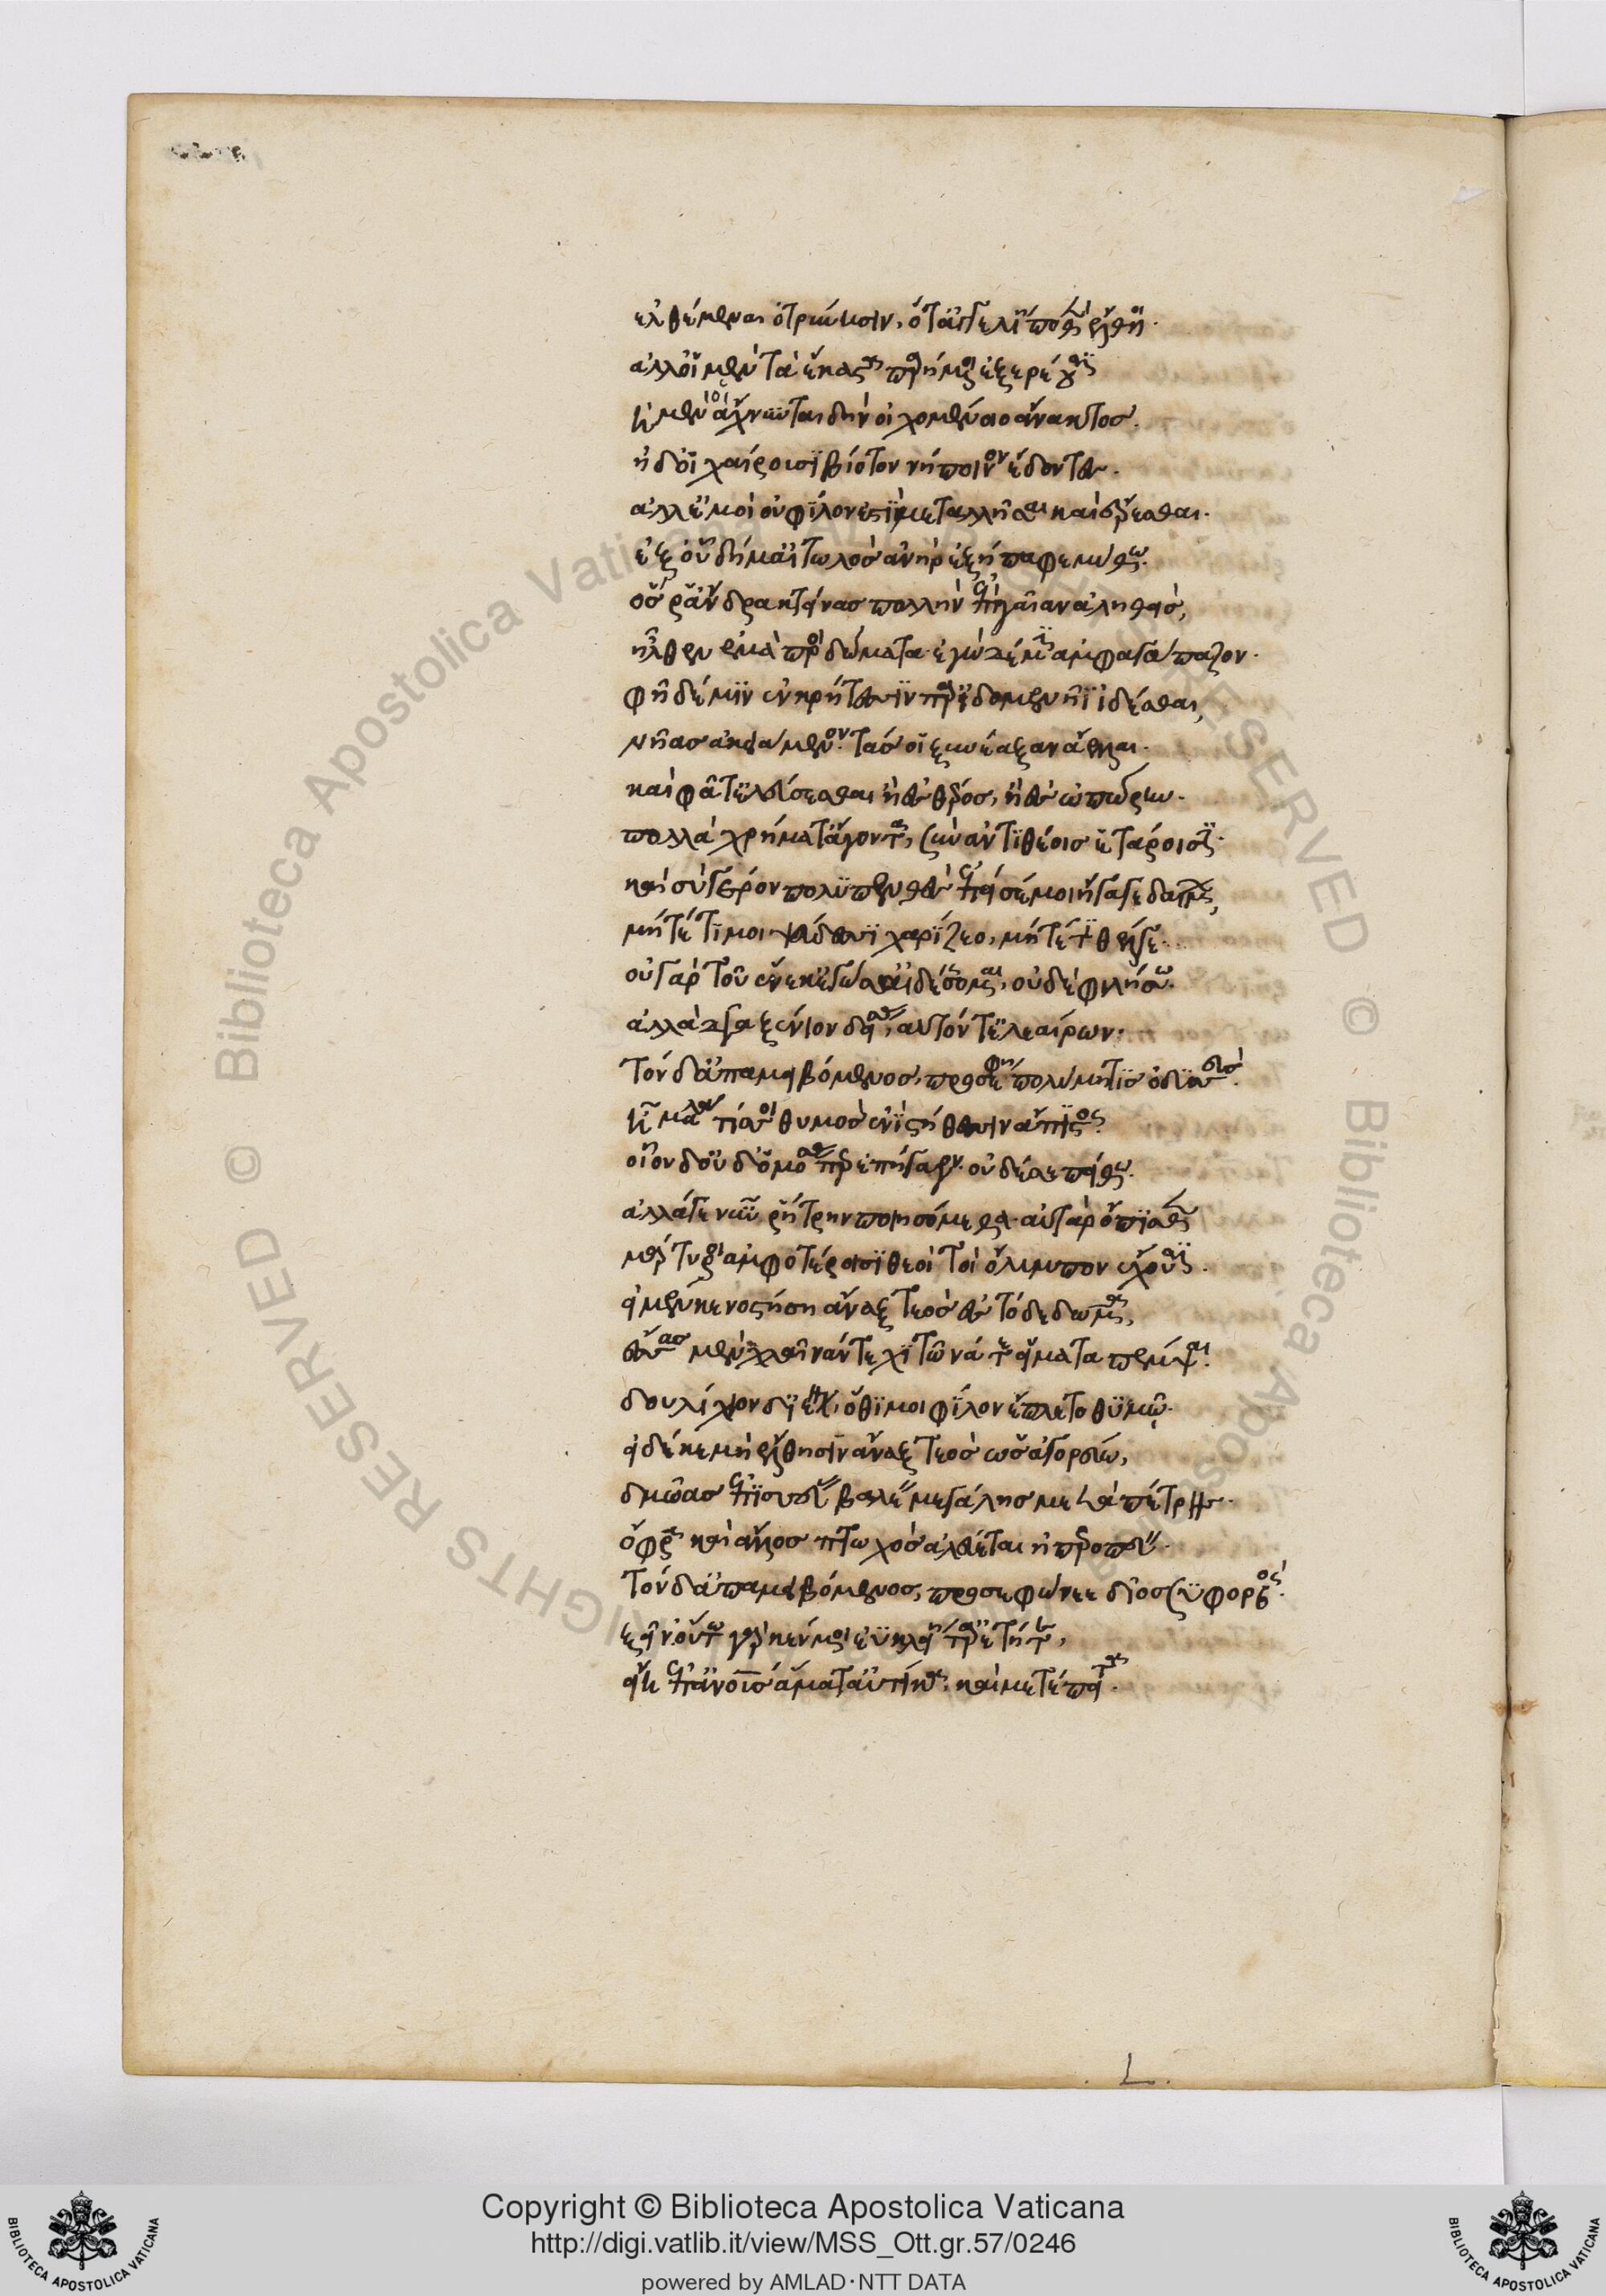 ἐλθέμεναι ὀτρύνησιν, ὅτ' ἀγγελίη ποθὲν ἔλθῃ.
ἀλλ' οἱ μὲν τὰ ἕκαστα παρήμενοι ἐξερέουσιν
ἠμὲν οἳ ἄχνυνται δὴν οἰχομένοιο ἄνακτος.
ἠδ' οἳ χαίρουσι βίοτον νήποινον ἔδοντες.
ἀλλ' ἐμοὶ οὐ φίλον ἐστὶ μεταλλῆσαι καὶ ἔρεσθαι.
ἐξ οὗ δή μ' Αἰτωλὸς ἀνὴρ ἐξήπαφε μύθῳ.
ὅς ῥ' ἄνδρα κτείνας πολλὴν ἐπὶ γαῖαν ἀληθεὶς,
ἦλθεν ἐμὰ πρὸς δώματα· ἐγὼ δέ μιν ἀμφαγάπαζον.
φῆ δέ μιν ἐν Κρήτεσσι παρ' Ἰδομενῆϊ ἰδέσθαι,
νῆας ἀκειόμενον. τάς οἱ ξυνέαξαν ἄελλαι.
καὶ φάτ' ἐλεύσεσθαι ἢ ἐς θέρος, ἢ ἐς ὀπώρην.
πολλὰ χρήματ' ἄγοντα, σὺν ἀντιθέοις ἑτάροισι.
καὶ σὺ γέρον πολυπενθὲς ἐπεί σέ μοι ἤγαγε δαίμων,
μήτέ τί μοι ψεύδεσσι χαρίζεο, μήτέ τι θέλγε.
οὐ γὰρ τοὔνεκ' ἐγώ σ' αἰδέσσομαι, οὐδὲ φιλήσω.
ἀλλὰ Δία ξένιον δείσας, αὐτόν τ' ἐλεαίρων.
Τὸν δ' ἀπαμειβόμενος, προσέφη πολύμητις Ὀδυσσεύς.
ἦ μάλα τίς τοι θυμὸς ἐνὶ στήθεσσιν ἄπιστος.
οἷόν σ' οὐδ' ὀμόσας περ ἐπήγαγον. οὐδέ σε πείθω.
ἀλλ' ἄγε νῦν ῥήτρην ποιησόμεθα· αὐτὰρ ὄπισθεν
μάρτυροι ἀμφοτέροισι θεοὶ τοὶ Ὄλυμπον ἔχουσι.
εἰ μέν κεν νοστήσῃ ἄναξ τεὸς ἐς τόδε δῶμα,
ἕσσας με χλαῖνάν τε χιτῶνά τε εἵματα πέμψαι.
Δουλίχιόνδ' ἰέναι, ὅθι μοι φίλον ἔπλετο θυμῷ.
εἰ δέ κε μὴ ἔλθῃσιν ἄναξ τεὸς ὡς ἀγορεύω,
δμῶας ἐπισσεύας βαλέειν μεγάλης κατὰ πέτρης.
ὄφρα καὶ ἄλλος πτωχὸς ἀλεύεται ἠπεροπεύειν.
Τὸν δ' ἀπαμειβόμενος, προσεφώνεε δῖος ὑφορβός.
ξεῖν' οὕτω γάρ κέν μοι ἐϋκλείη τ' ἀρετή τε,
εἴη ἐπ' ἀνθρώπους ἅμα τ' αὐτίκα, καὶ μετέπειτα.
L.
Copyright © Biblioteca Apostolica Vaticana
http://digi.vatlib.it/view/MSS_Ott.gr.57/0246
powered by AMLAD·NTT DATA